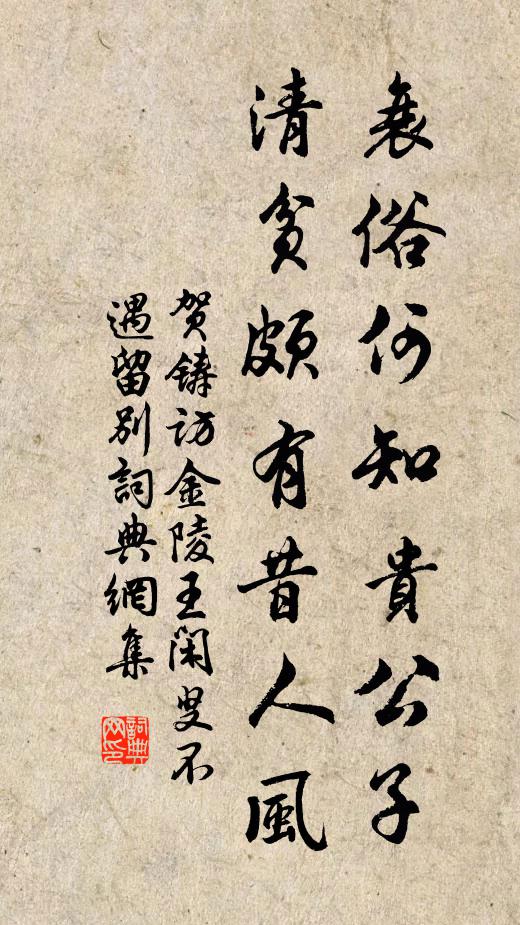 衰俗何知貴公子
清貧頗有昔人風
賀鑄訪金陵王閑叟不
遇留別詞典網集
詞典
网印